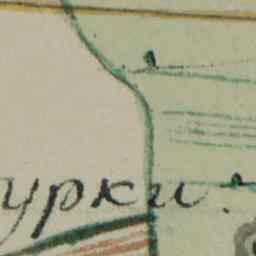 урки.